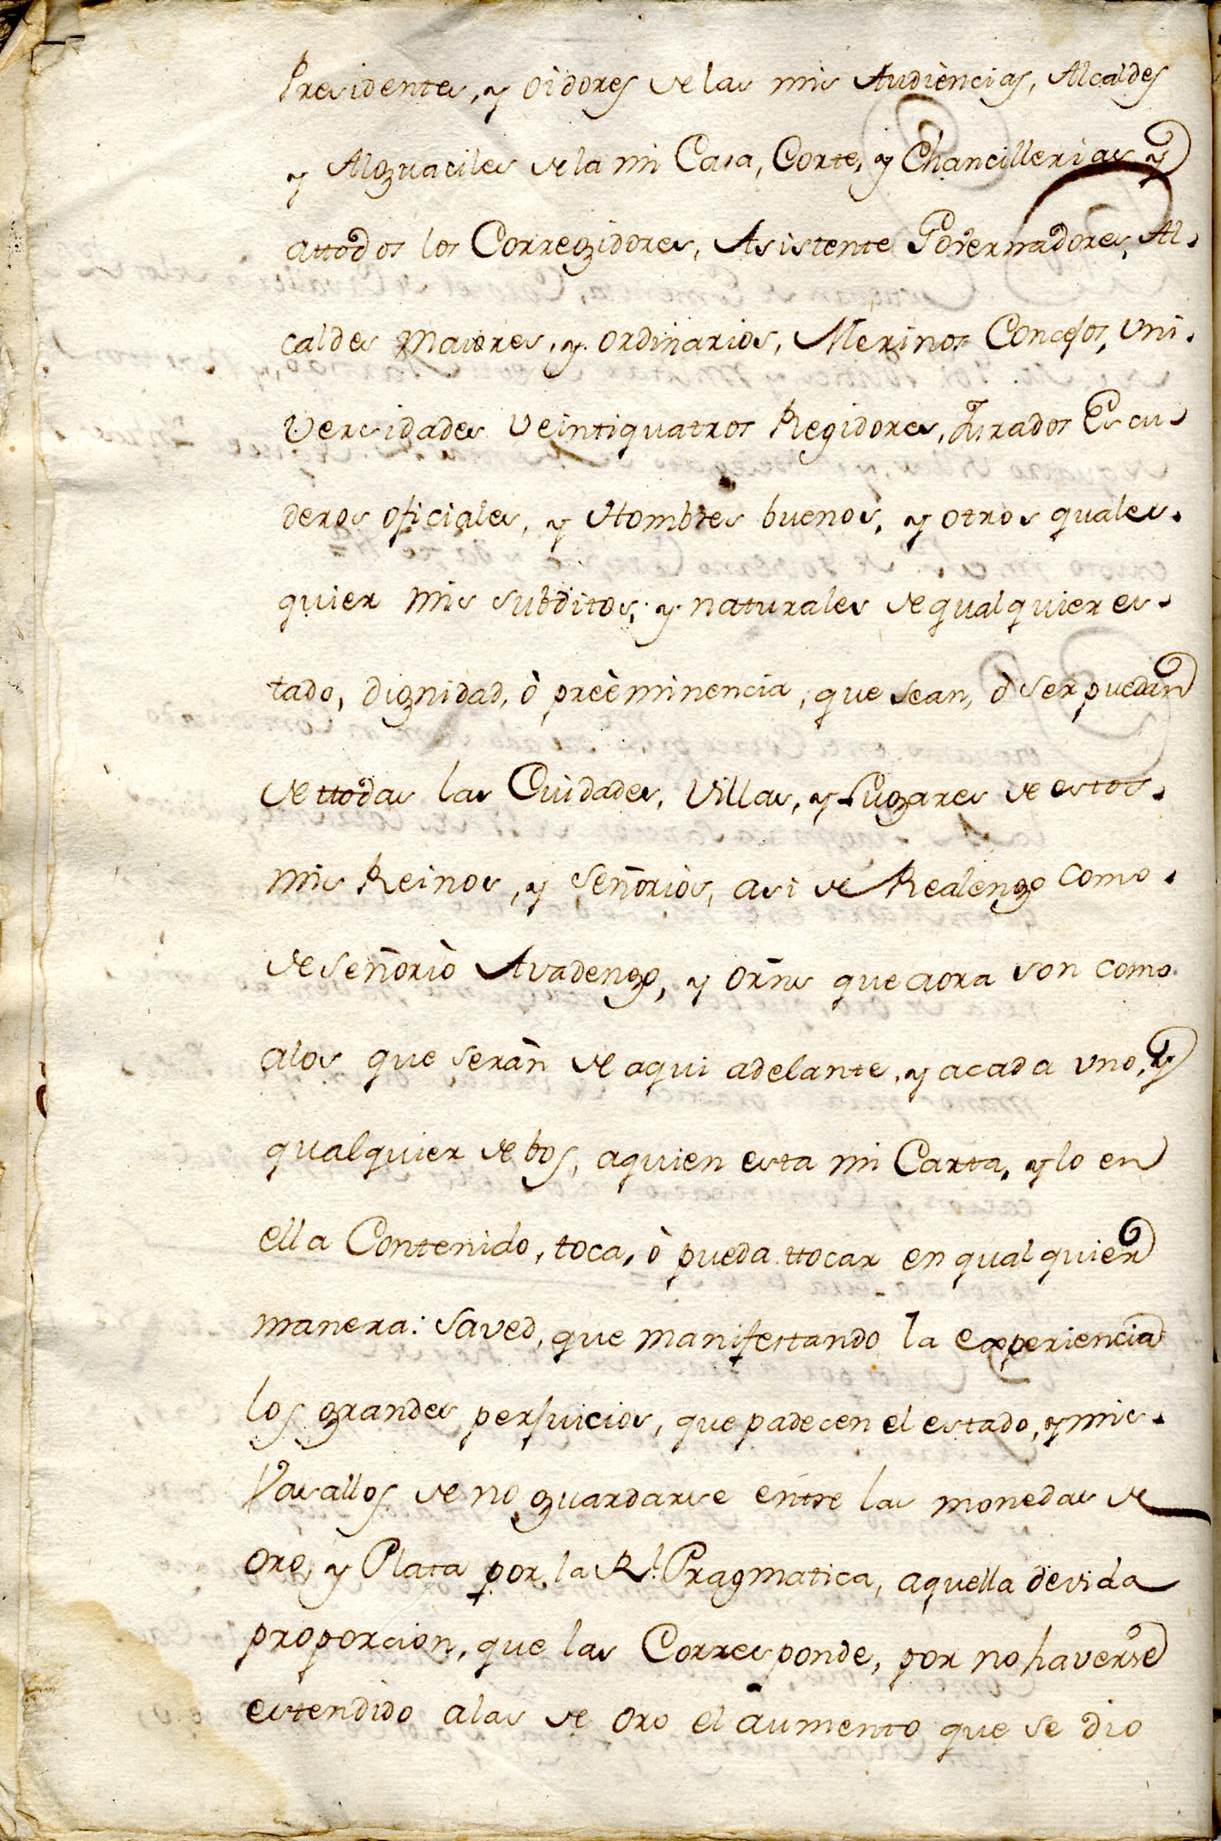 Presidentes, y Oidores de las mis Audiencias, Alcaldes
y Alguaciles de la mi Casa, Corte, y Chancillerias y
attodos los Corregidores, Asistente Governadores, Al-
caldes maiores, y ordinarios, Merinos Concejos, Uni-
versidades Veintiquatros Regidores, Jurados Escu-
deros oficiales, y Hombres buenos, y otros quales-
quier mis subditos, y naturales de qualquier es-
tado, dignidad, ò preèminencia, que sean, ò ser puedan
de ttodas las Ciudades, Villas, y Lugares de estos
mis Reinos, y Señorios, asi de Realengo como
de Señorio Avadengo, y Orñs que aora son como
alos que seràn de aqui adelante, y acada uno, y
qualquier de bos, aquien esta mi Carta, y lo en
ella Contenido, toca, ò pueda ttocar en qualquier
manera: Saved, que manifestando la experiencia
los grandes perjuicios, que padecen el estado, y mis
Vasallos de no guardarse entre las monedas de
Oro, y Plata por la Rl. Pragmatica, aquella devida
proporcion, que las Corresponde, por no haverse
estendido alas de Oro el aumento que se dio